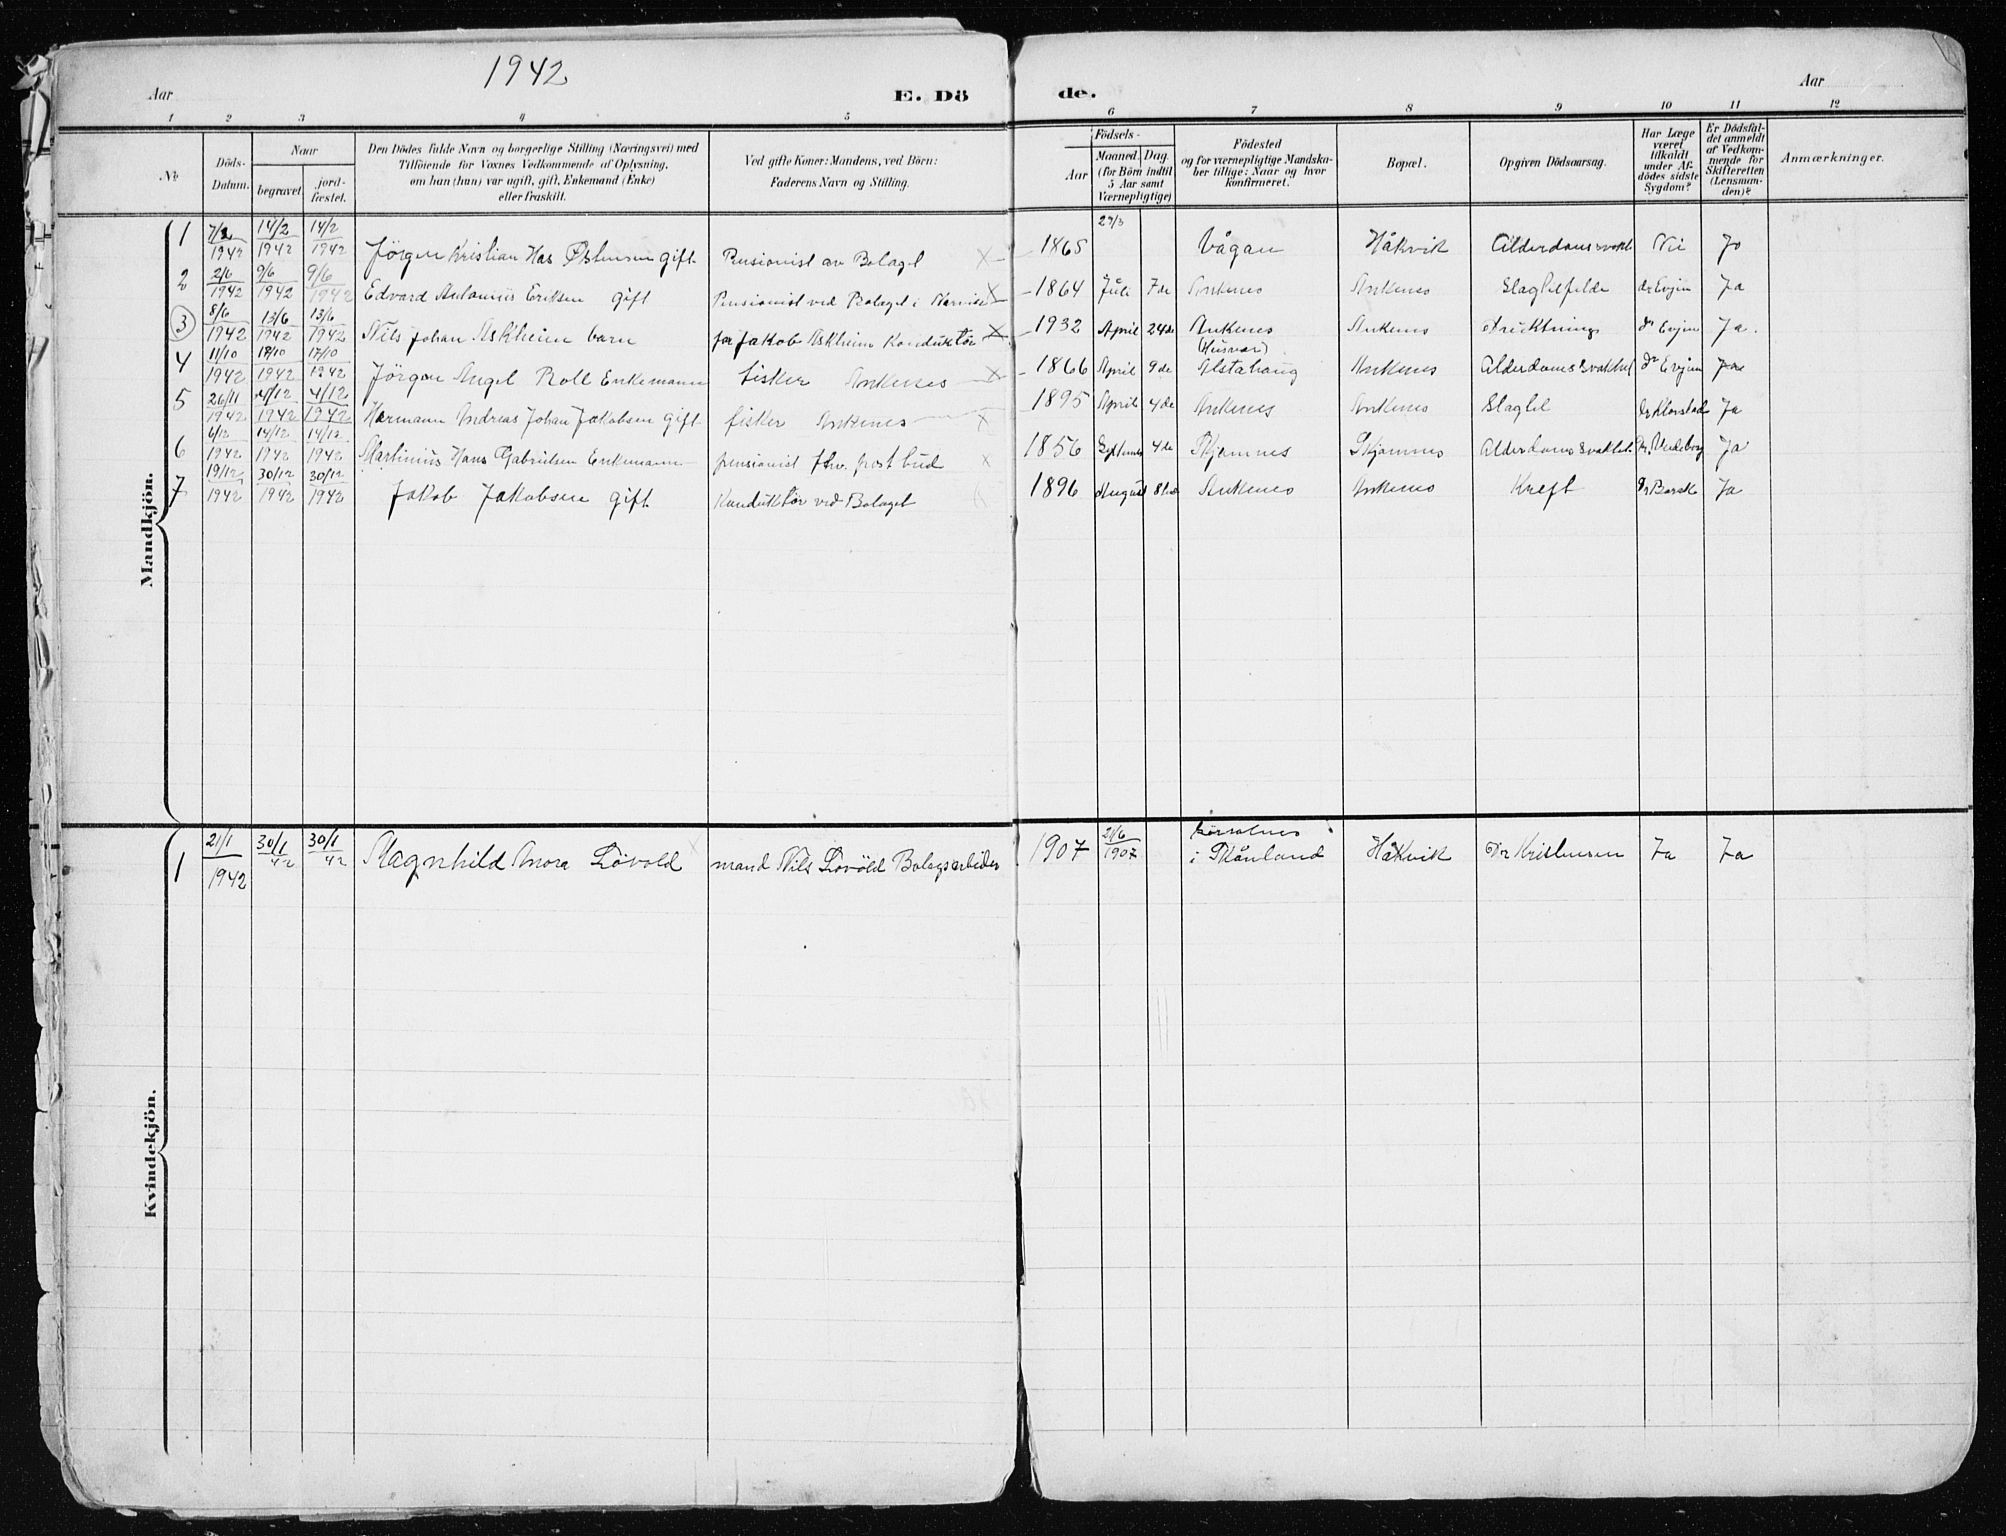 1942
Aar E. Dö de. Aar
1 2 3 4 5 6 7 8 9 10 11 12
№
Döds-Datum.
Naar
begravet.
jord-fæstet.
Den Dödes fulde Navn og borgerlige Stilling (Næringsvei) med
Tilföiende for Voxnes Vedkommende af Oplysning,
om han (hun) var ugift, gift, Enkemand (Enke)
eller fraskilt.
Ved gifte Koner: Mandens, ved Börn:
Faderens Navn og Stilling.
Födsels-
Aar
Maaned. Dag
(for Börn indtil
5 Aar samt
Værnepligtige)
Födested
og for værnepligtige Mandska-
ber tillige: Naar og hvor
konfirmeret.
Bopæl.
Opgiven Dödsaarsag.
Har Læge
været
tilkaldt
under Af-
dödes sidste
Sygdom?
Er Dödsfal-
det anmeldt
af Vedkom-
mende for
Skifteretten
(Lensman-
den)?
Anmærkninger.
Mandkjön.
1 1942 14/2 1942 14/2 1942 Jörgen Kristian gift Pensionist av Bolaget X 1865 29/3 Vågan Håkvik Alderdomssvakhet Nei Ja
2 2/6 1942 9/6 1942 9/6 1942 Edvard Antonius Eriksen gift Pensionist ved Bolaget i Narvik X 1864 Juli 7de Ankenes Ankenes Slagtilfelde dr Evjen Ja
3 8/6 1942 13/6 1942 13/6 1942 Nils Johan Askheim barn far Jakob Askheim Konduktör X 1932 April 24de Ankenes Ankenes dr Evjen Ja.
4 11/10 1942 17/10 1942 17/10 1942 Jörgen Angel Roll Enkemann fisker Ankenes X 1866 April 9de Alstahaug Ankenes Alderdomssvakhet dr Evjen Ja
5 26/11 1942 4/12 1942 4/12 1942 Hermann Andreas Johan Jakobsen gift fisker Ankenes X 1895 April 4de Ankenes Ankenes Slagtil Ja
6 6/12 1942 14/12 1942 14/12 1942 Martinius Hans Gabrielsen Enkemann pensionist fhv. postbud X 1856 4de Skjomnes Skjomnes Alderdomssvakhet Ja
7 19/12 1942 30/12 1942 30/12 1942 Jakob Jakobsen gift Konduktör ved Bolaget 1896 August Ankenes Ankenes Kreft Ja
Kvindekjön.
1 21/1 1942 30/1 42 30/1 42 Magnhild Nora Lövold mand Nils Lövold Bolagsarbeider 1907 21/6 1907 i Skånland Håkvik Dr Kristensen Ja Ja